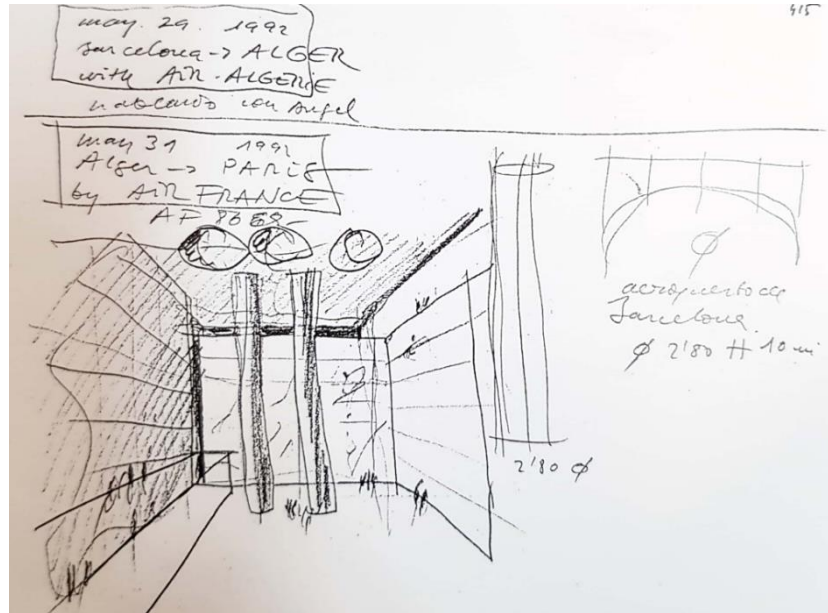 415
may. 29. 1992
Barcelona -> ALGER
with AIR-ALGERIE
hablando con Angel
may 31 1992
Alger -> PARIS
by AIR FRANCE
AF 8668
aeropuerto de
Barcelona.
ø 2'80 H 10 m
2'80 ø